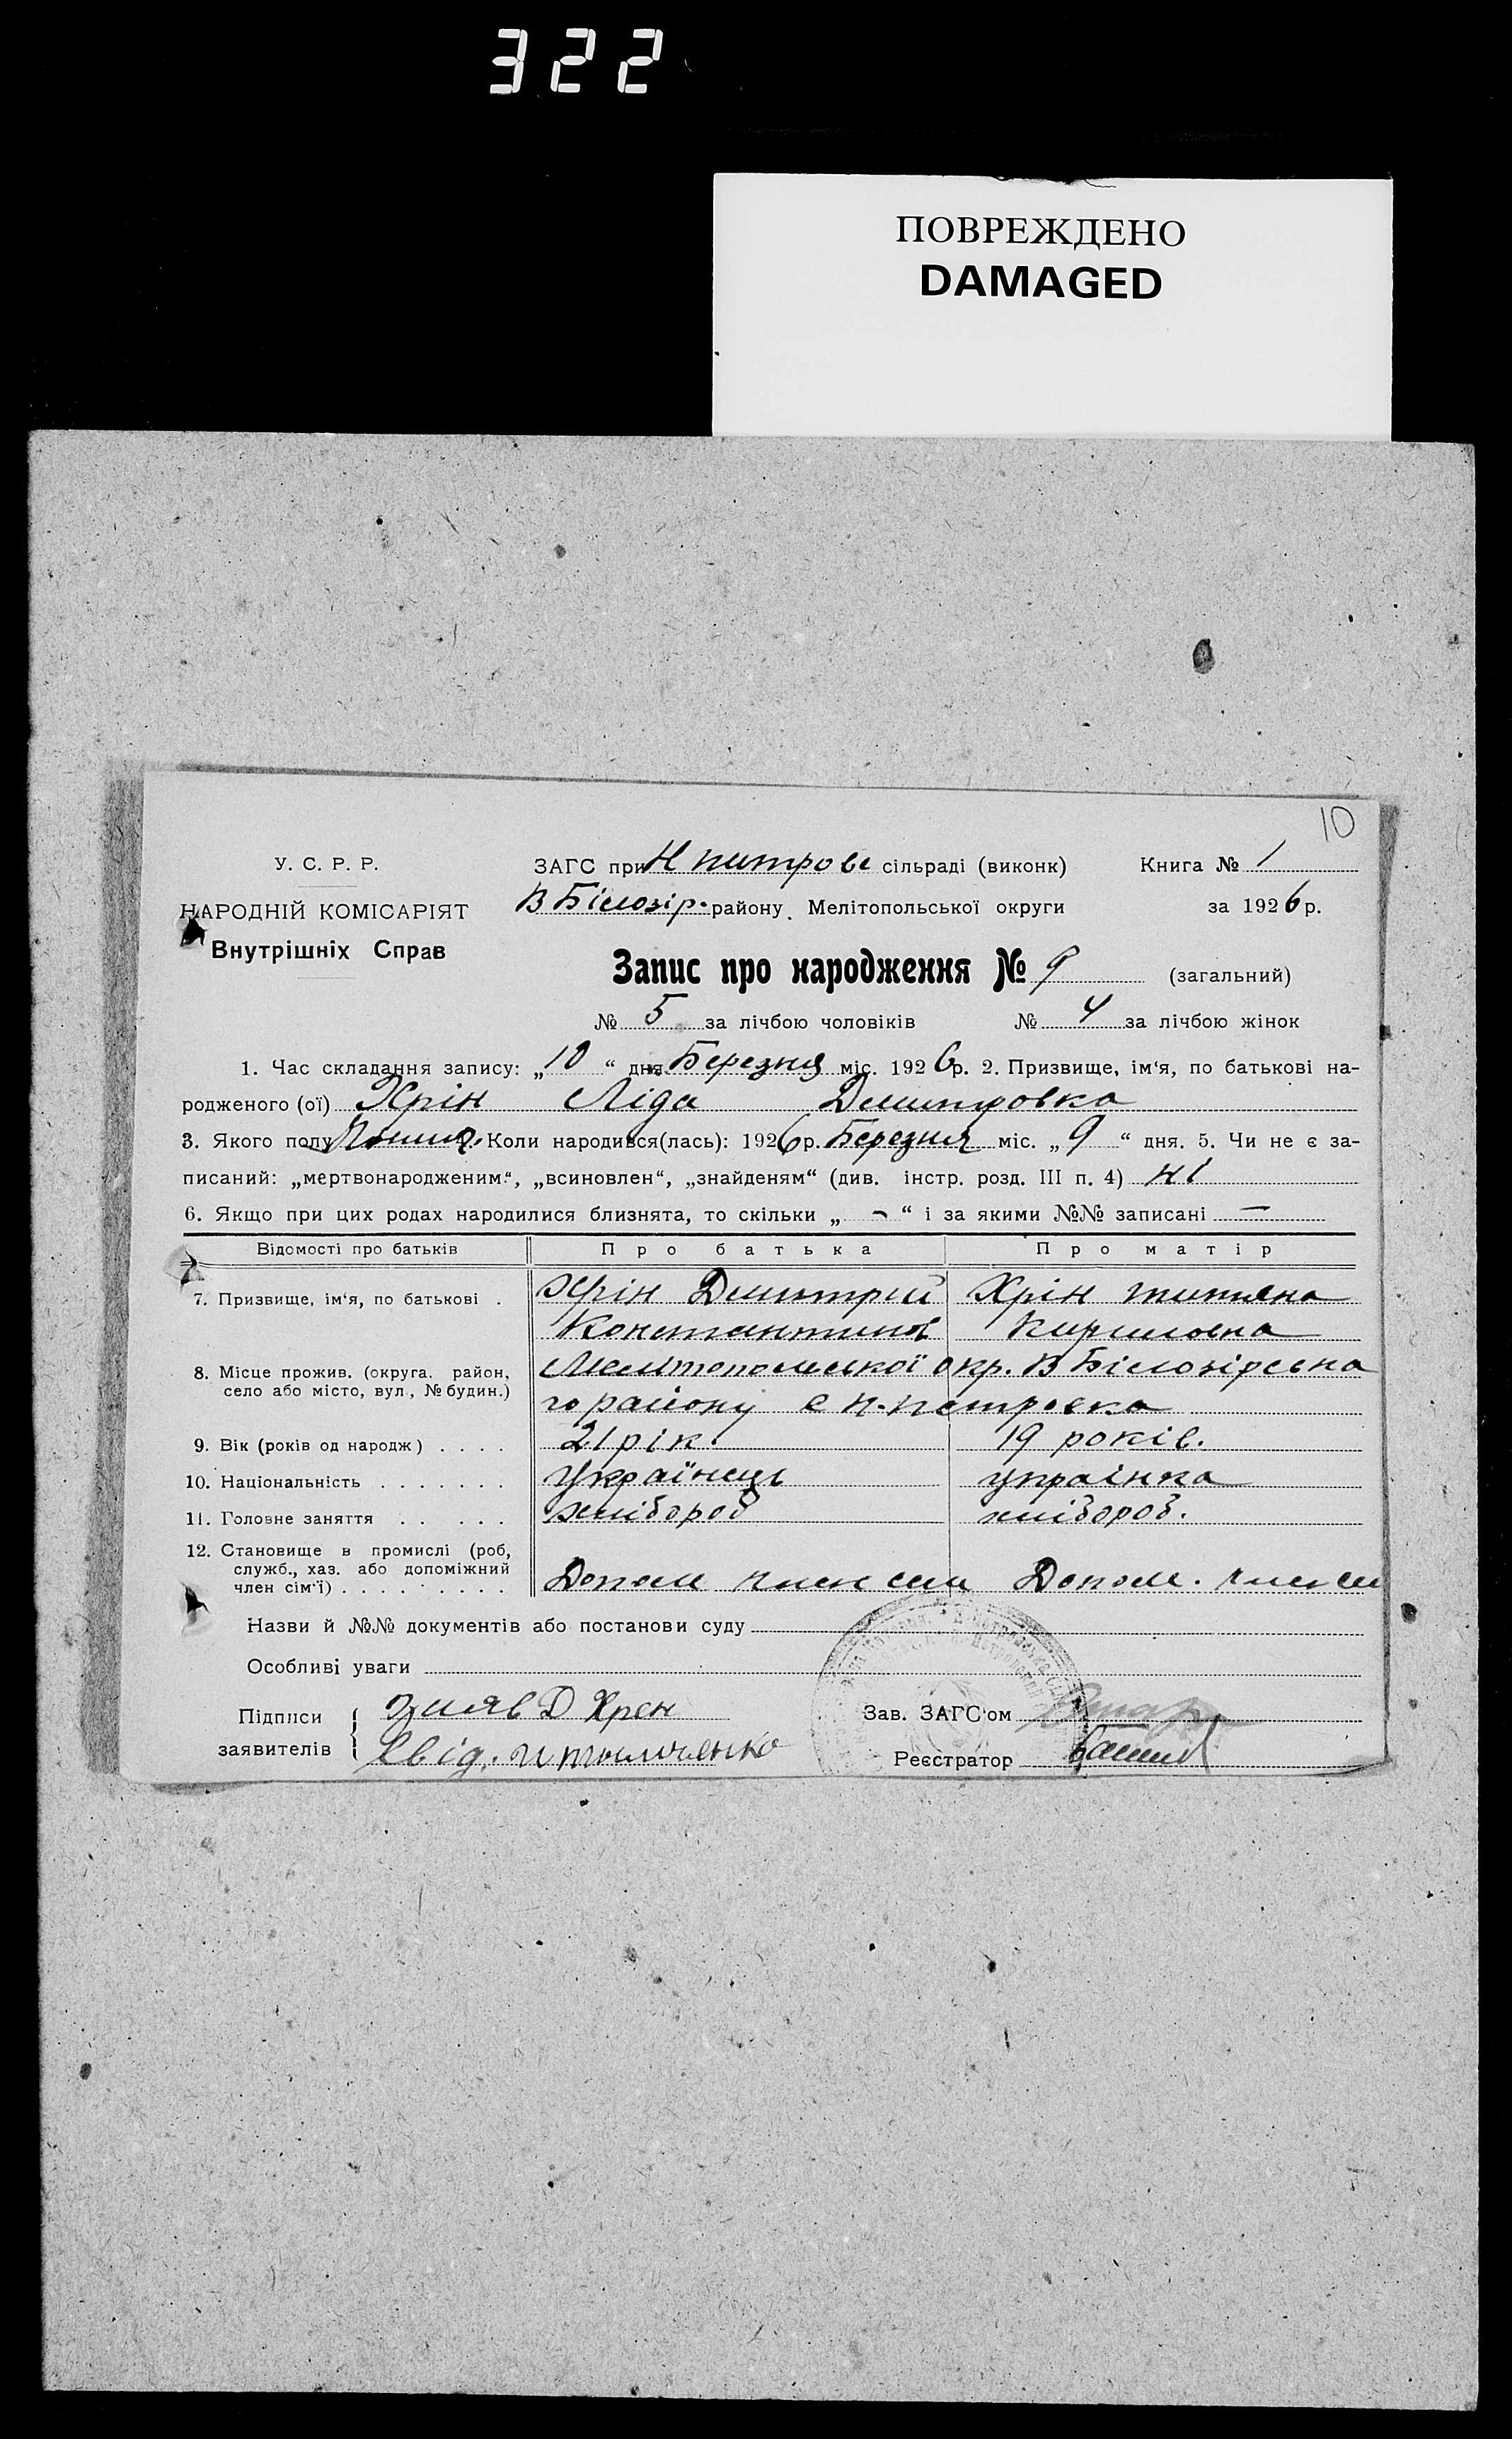 322
ПОВРЕЖДЕНО
DAMAGED
10
У. С. Р. Р.
ЗАГС при Н питрове сільраді (виконк) Книга № 1
НАРОДНІЙ КОМІСАРІЯТ
В Білозір. району. Мелітопольської округи за 1926 р.
Внутрішніх Справ
Запис про народження № 9 (загальний)
№ 5 за лічбою чоловіків № 4 за лічбою жінок
1. Час складання запису: „10“ дня Березня міс. 1926 р. 2. Призвище, ім‘я, по батькові на-
родженого (ої) Хрін Ліда Дмитровка
3. Якого полу Коли народився(лась): 1926 р. Березня міс. „9“ дня. 5. Чи не є за-
писаний: „мертвонародженим“, „всиновлен“, „знайденям“ (див. інстр. розд. III п. 4) ні
6. Якщо при цих родах народилися близнята, то скільки „ - “ і за якими №№ записані —
Відомості про батьків Про батька Про матір
7. Призвище, ім‘я, по батькові . Хрін Дмитрій Хрін титяна
Константинов Кириловна
8. Місце прожив. (округа. район, село або місто, вул., № будин.) Мелітопольської окр. В Білозірська
го району с н-петровка
9. Вік (років од народж) . . . . 21 рік. 19 років.
10. Національність . . . . . . . Українець українка
11. Головне заняття . . . . . хлібороб хлібороб.
12. Становище в промислі (роб,
служб., хаз. або допоміжний
член сім‘ї) . . . . . . . . . Допом член сем Допом. член сем
Назви й №№ документів або постанови суду
Особливі уваги
Підписи заяв Д Хрен Зав. ЗАГС‘ом
заявителів Свід. Реєстратор